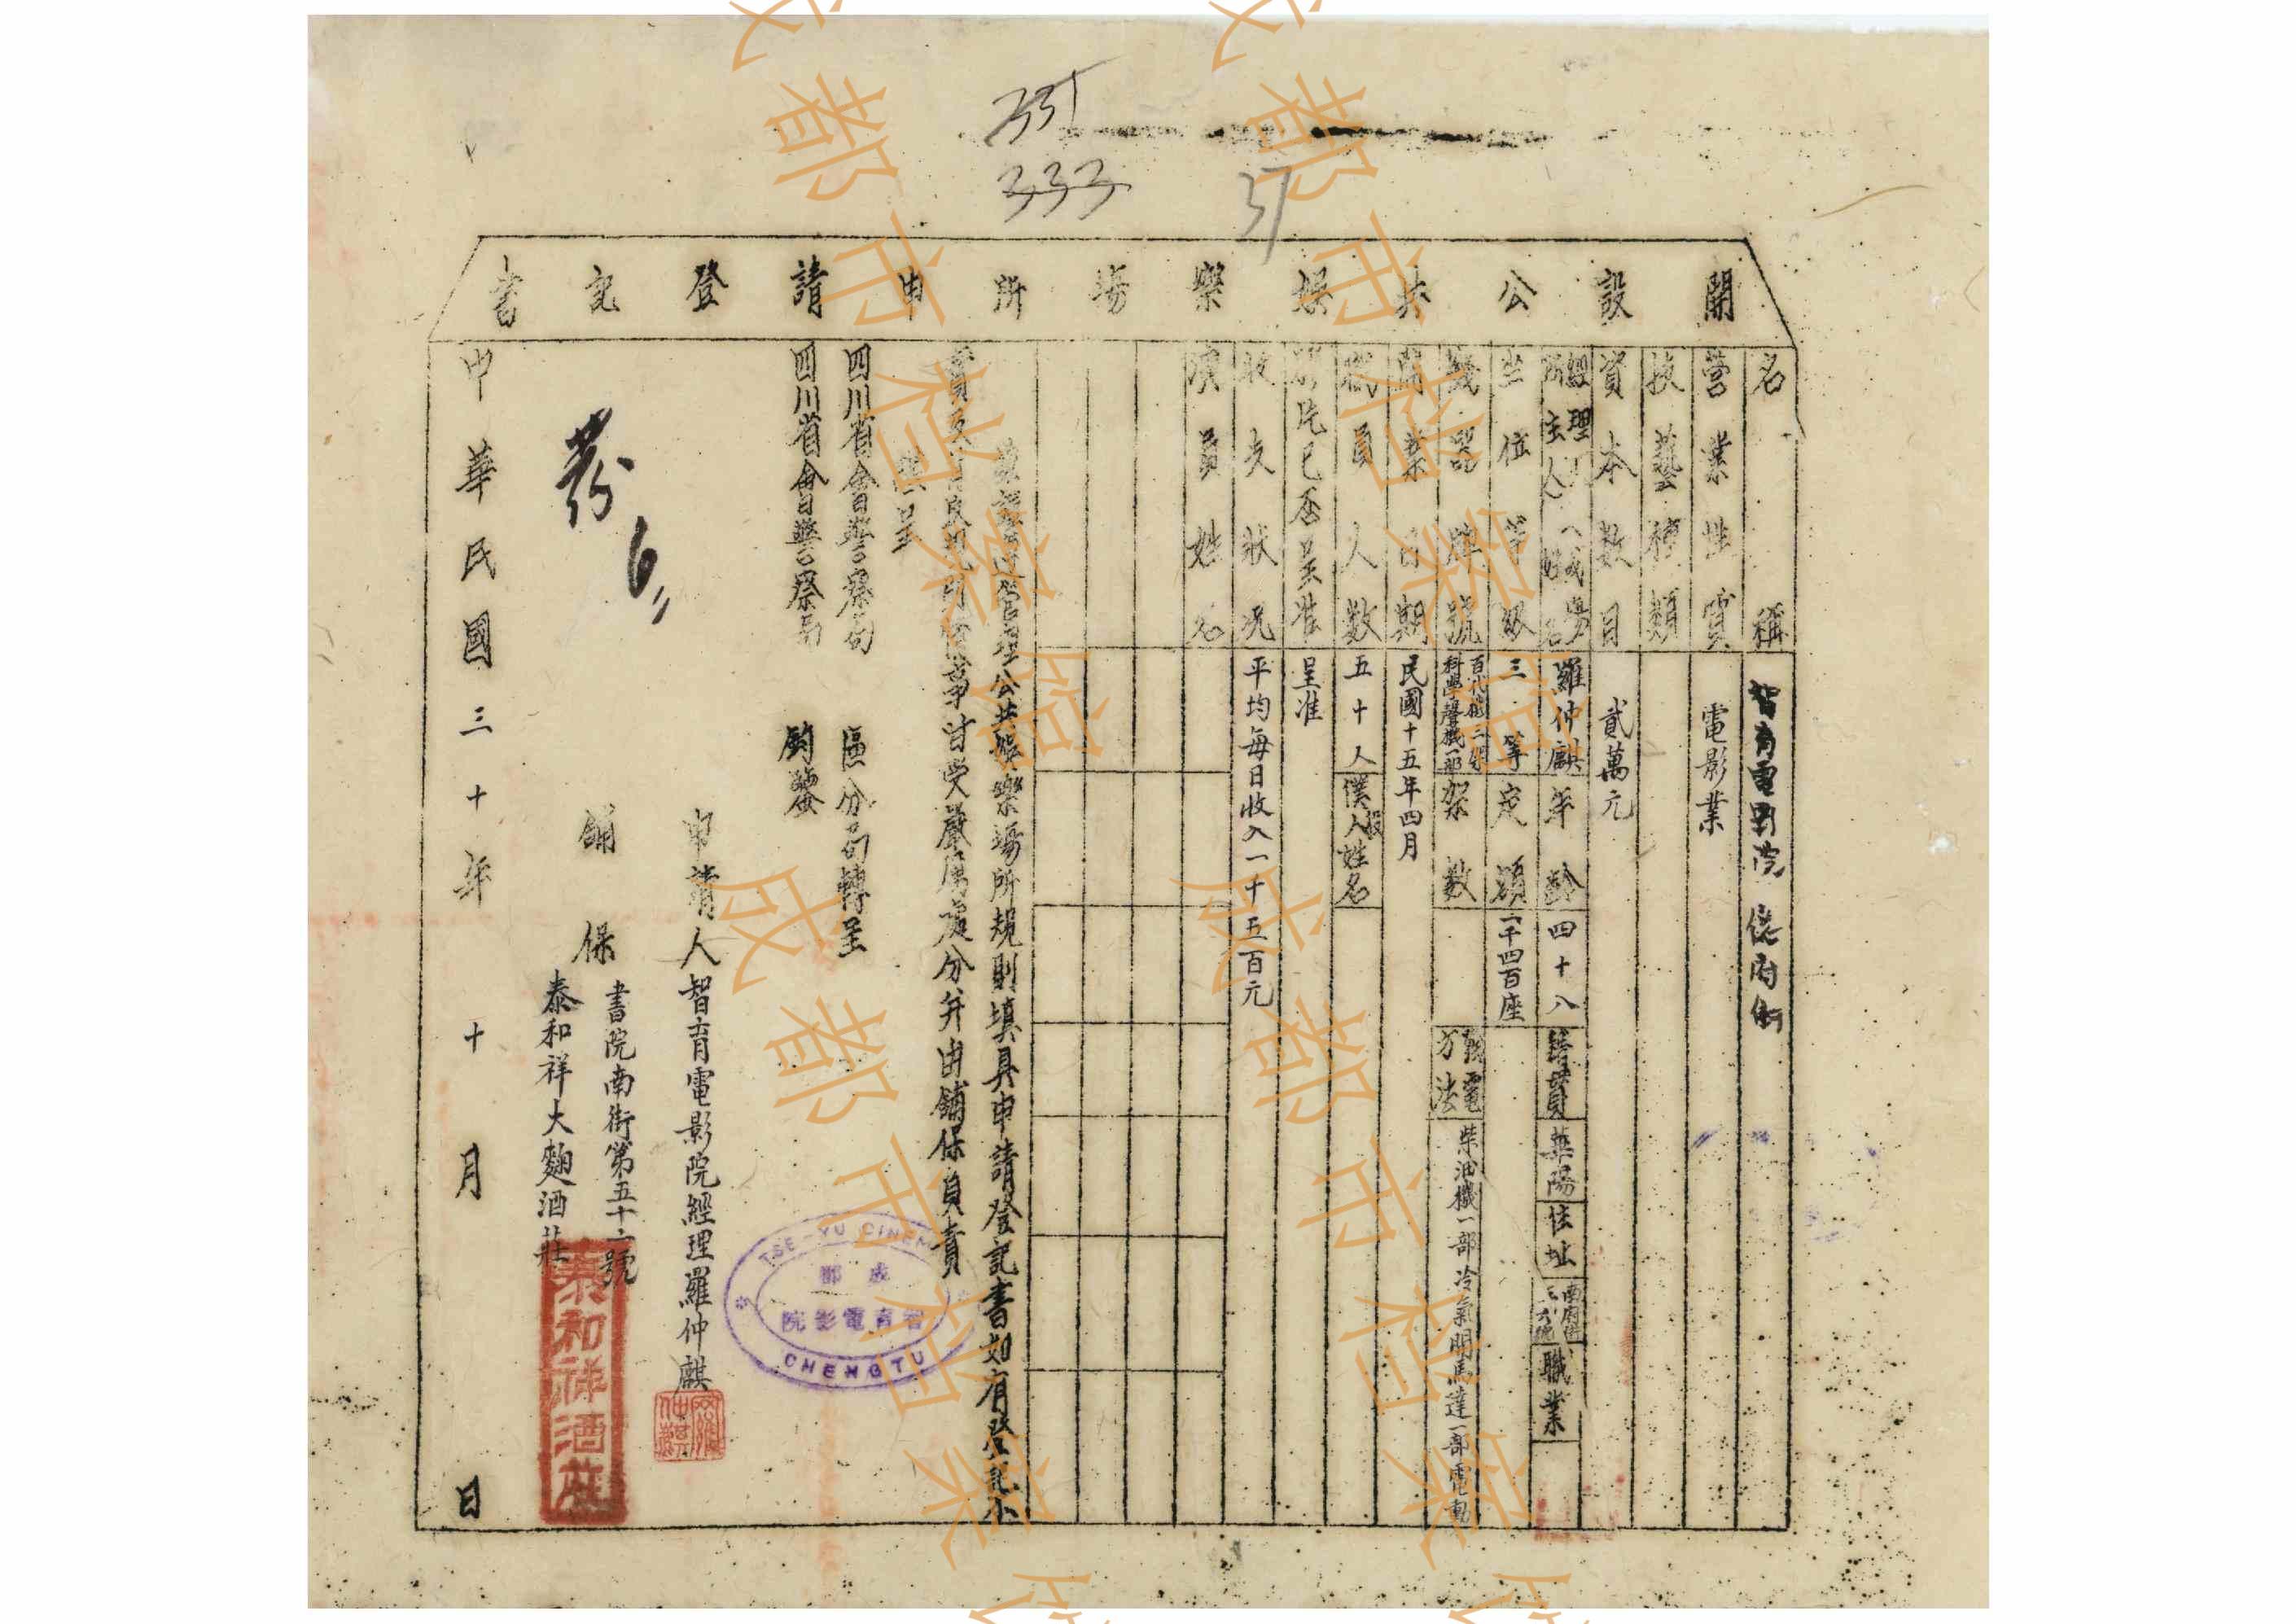 331
333
37
開設公共娛樂場所申請登記書
名稱 智育電影院
營業性質 電影業
技藝種類
資本數目 貳萬元
經理 羅仲麒 年齡 四十八 籍貫 華陽 住址 南府街 職業
坐位等級 三等 定額 一千四百座
機器牌號 科學聲機一部 架數 方法 柴油機一部冷氣開馬達一部電動
開業日期 民國十五年四月
職員人數 五十人 僕役人姓名
影片已否呈准 呈准
收支狀況 平均每日收入一千五百元
演員姓名
管理公共娛樂場所規則填具申請登記書如有登記不
等事甘受嚴厲處分并由舖保負責
謹呈
四川省會警察局 區分局轉呈
四川省會警察局 鈞鑒
申請人 智育電影院經理羅仲麒
TSE-YU CINEMA
成都
智育電影院
CHENGTU
舖保 書院南街第五十二號
泰和祥大麯酒莊
泰和祥酒莊
中華民國三十年十月 日
成都市檔案館
成都市檔案館
成都市檔案館
成都市檔案館